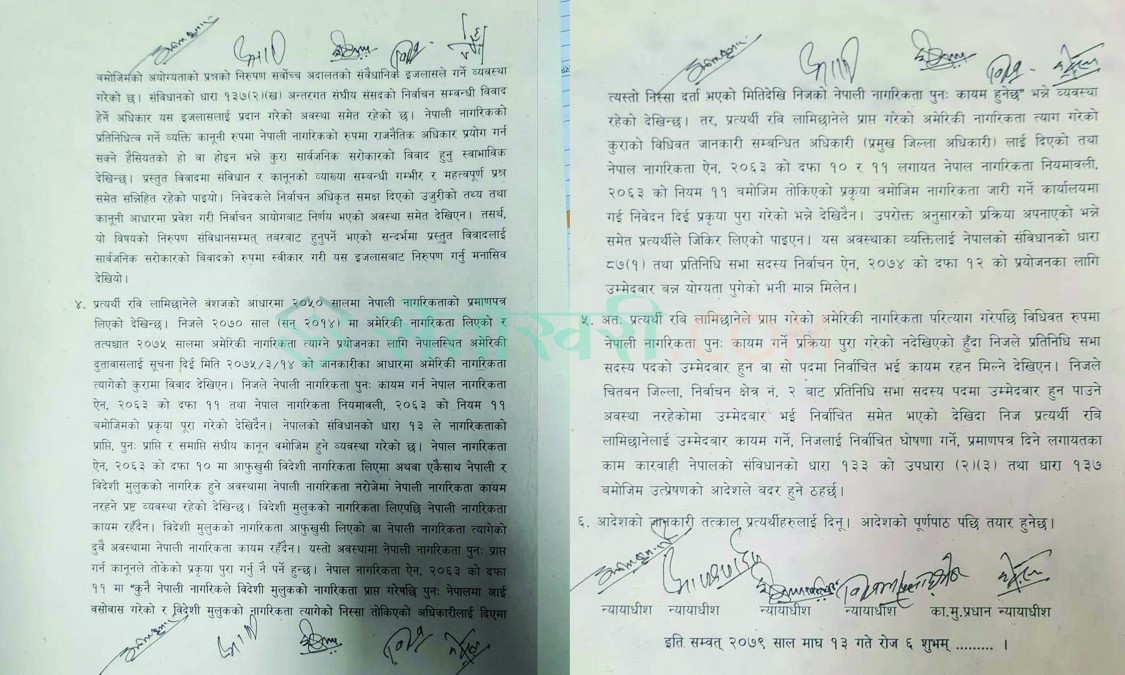 बमोजिमको अयोग्यताको प्रश्नको निरुपण सर्वोच्च अदालतको संवैधानिक इजलासले गर्ने व्यवस्था
गरेको छ। संविधानको धारा १३७(२)(ख) अन्तरगत संघीय संसदको निर्वाचन सम्बन्धी विवाद
हेर्ने अधिकार यस इजलासलाई प्रदान गरेको अवस्था समेत रहेको छ। नेपाली नागरिकको
प्रतिनिधित्व गर्ने व्यक्ति कानूनी रुपमा नेपाली नागरिकको रुपमा राजनैतिक अधिकार प्रयोग गर्न
सक्ने हैसियतको हो वा होइन भन्ने कुरा सार्वजनिक सरोकारको विवाद हुनु स्वाभाविक
देखिन्छ। प्रस्तुत विवादमा संविधान र कानूनको व्याख्या सम्बन्धी गम्भीर र महत्वपूर्ण प्रश्न
समेत सन्निहित रहेको पाइयो। निवेदकले निर्वाचन अधिकृत समक्ष दिएको उजुरीको तथ्य तथा
कानूनी आधारमा प्रवेश गरी निर्वाचन आयोगबाट निर्णय भएको अवस्था समेत देखिएन। तसर्थ,
यो विषयको निरुपण संविधानसम्मत् तवरबाट हुनुपर्ने भएको सन्दर्भमा प्रस्तुत विवादलाई
सार्वजनिक सरोकारको विवादको रुपमा स्वीकार गरी यस इजलासबाट निरुपण गर्नु मनासिव
देखियो।
४. प्रत्यर्थी रवि लामिछानेले वंशजको आधारमा २०५० सालमा नेपाली नागरिकताको प्रमाणपत्र
लिएको देखिन्छ। निजले २०७० साल (सन् २०१४) मा अमेरिकी नागरिकता लिएको र
तत्पश्चात २०७५ सालमा अमेरिकी नागरिकता त्याग्ने प्रयोजनका लागि नेपालस्थित अमेरिकी
दुतावासलाई सूचना दिई मिति २०७५/३/१४ को जानकारीका आधारमा अमेरिकी नागरिकता
त्यागेको कुरामा विवाद देखिएन। निजले नेपाली नागरिकता पुनः कायम गर्न नेपाल नागरिकता
ऐन, २०६३ को दफा ११ तथा नेपाल नागरिकता नियमावली, २०६३ को नियम ११
बमोजिमको प्रकृया पूरा गरेको देखिदैन। नेपालको संविधानको धारा १३ ले नागरिकताको
प्राप्ति, पुनः प्राप्ति र समाप्ति संघीय कानून वमोजिम हुने व्यवस्था गरेको छ। नेपाल नागरिकता
ऐन, २०६३ को दफा १० मा आफुखुसी विदेशी नागरिकता लिएमा अथवा एकैसाथ नेपाली र
विदेशी मुलुकको नागरिक हुने अवस्थामा नेपाली नागरिकता नरोजेमा नेपाली नागरिकता कायम
नरहने प्रष्ट व्यवस्था रहेको देखिन्छ। विदेशी मुलुकको नागरिकता लिएपछि नेपाली नागरिकता
कायम रहँदैन। विदेशी मुलुकको नागरिकता आफुखुसी लिएको वा नेपाली नागरिकता त्यागेको
दुवै अवस्थामा नेपाली नागरिकता कायम रहँदैन। यस्तो अवस्थामा नेपाली नागरिकता पुनः प्राप्त
गर्न कानूनले तोकेको प्रकृया पुरा गर्नु नै पर्ने हुन्छ। नेपाल नागरिकता ऐन, २०६३ को दफा
११ मा "कुनै नेपाली नागरिकले विदेशी मुलुकको नागरिकता प्राप्त गरेपछि पुनः नेपालमा आई
बसोवास गरेको र विदेशी मुलुकको नागरिकता त्यागेको निस्सा तोकिएको अधिकारीलाई दिएमा
त्यस्तो निस्सा दर्ता भएको मितिदेखि निजको नेपाली नागरिकता पुनः कायम हुनेछ" भन्ने व्यवस्था
रहेको देखिन्छ। तर, प्रत्यर्थी रवि लामिछानेले प्राप्त गरेको अमेरिकी नागरिकता त्याग गरेको
कुराको विधिवत जानकारी सम्बन्धित अधिकारी (प्रमुख जिल्ला अधिकारी) लाई दिएको तथा
नेपाल नागरिकता ऐन, २०६३ को दफा १० र ११ लगायत नेपाल नागरिकता नियमावली,
२०६३ को नियम ११ बमोजिम तोकिएको प्रकृया वमोजिम नागरिकता जारी गर्ने कार्यालयमा
गई निवेदन दिई प्रकृया पुरा गरेको भन्ने देखिदैन। उपरोक्त अनुसारको प्रक्रिया अपनाएको भन्ने
समेत प्रत्यर्थीले जिकिर लिएको पाइएन। यस अवस्थाका व्यक्तिलाई नेपालको संविधानको धारा
८७(१) तथा प्रतिनिधि सभा सदस्य निर्वाचन ऐन, २०७४ को दफा १२ को प्रयोजनका लागि
उम्मेदवार बन्न योग्यता पुगेको भनी मान्न मिलेन।
५. अतः प्रत्यर्थी रवि लामिछानेले प्राप्त गरेको अमेरिकी नागरिकता परित्याग गरेपछि विधिवत रुपमा
नेपाली नागरिकता पुनः कायम गर्ने प्रक्रिया पुरा गरेको नदेखिएको हुँदा निजले प्रतिनिधि सभा
सदस्य पदको उम्मेदवार हुन वा सो पदमा निर्वाचित भई कायम रहन मिल्ने देखिएन। निजले
चितवन जिल्ला, निर्वाचन क्षेत्र नं. २ बाट प्रतिनिधि सभा सदस्य पदमा उम्मेदवार हुन पाउने
अवस्था नरहेकोमा उम्मेदवार भई निर्वाचित समेत भएको देखिदा निज प्रत्यर्थी रवि
लामिछानेलाई उम्मेदवार कायम गर्ने, निजलाई निर्वाचित घोषणा गर्ने, प्रमाणपत्र दिने लगायतका
काम कारवाही नेपालको संविधानको धारा १३३ को उपधारा (२)(३) तथा धारा १३७
बमोजिम उत्प्रेषणको आदेशले वदर हुने ठहर्छ।
६. आदेशको जानकारी तत्काल प्रत्यर्थीहरुलाई दिनू। आदेशको पूर्णपाठ पछि तयार हुनेछ।
न्यायाधीश न्यायाधीश न्यायाधीश न्यायाधीश का.मु.प्रधान न्यायाधीश
इति सम्वत् २०७९ साल माघ १३ गते रोज ६ शुभम् ......... ।